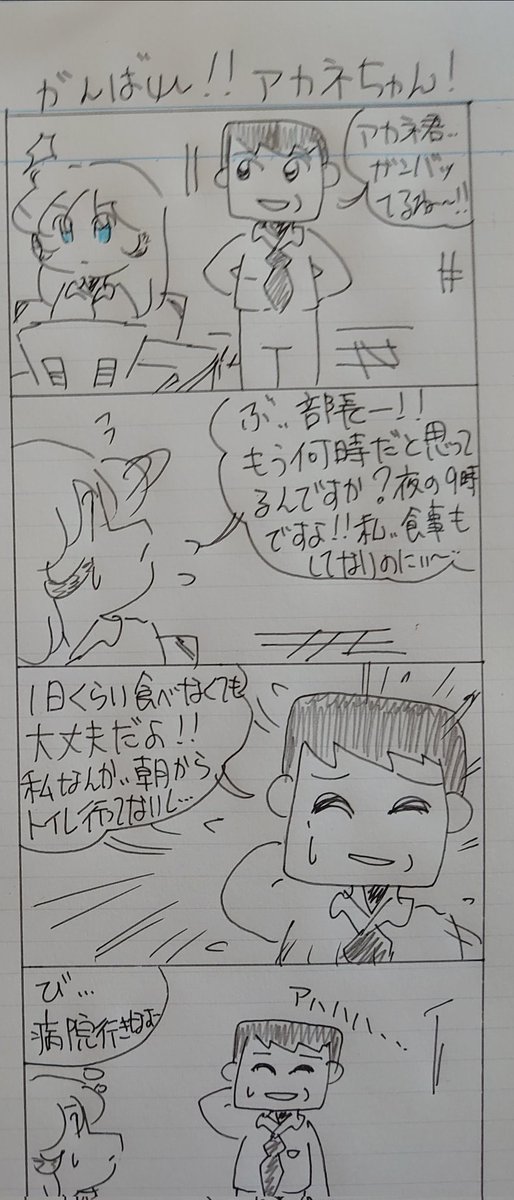 がんばれ!!アカネちゃん!
アカネ君..
ガンバッ
てるね〜!!
ぶ..部長ー!!
もう何時だと思って
るんですか?夜の9時
ですよ!!私..食事も
してないのにぃ〜..
1日くらい食べなくても
大丈夫だよ!!
私なんか..朝から
トイレ行ってないし...
び...
病院行きなよ
アハハハハ...